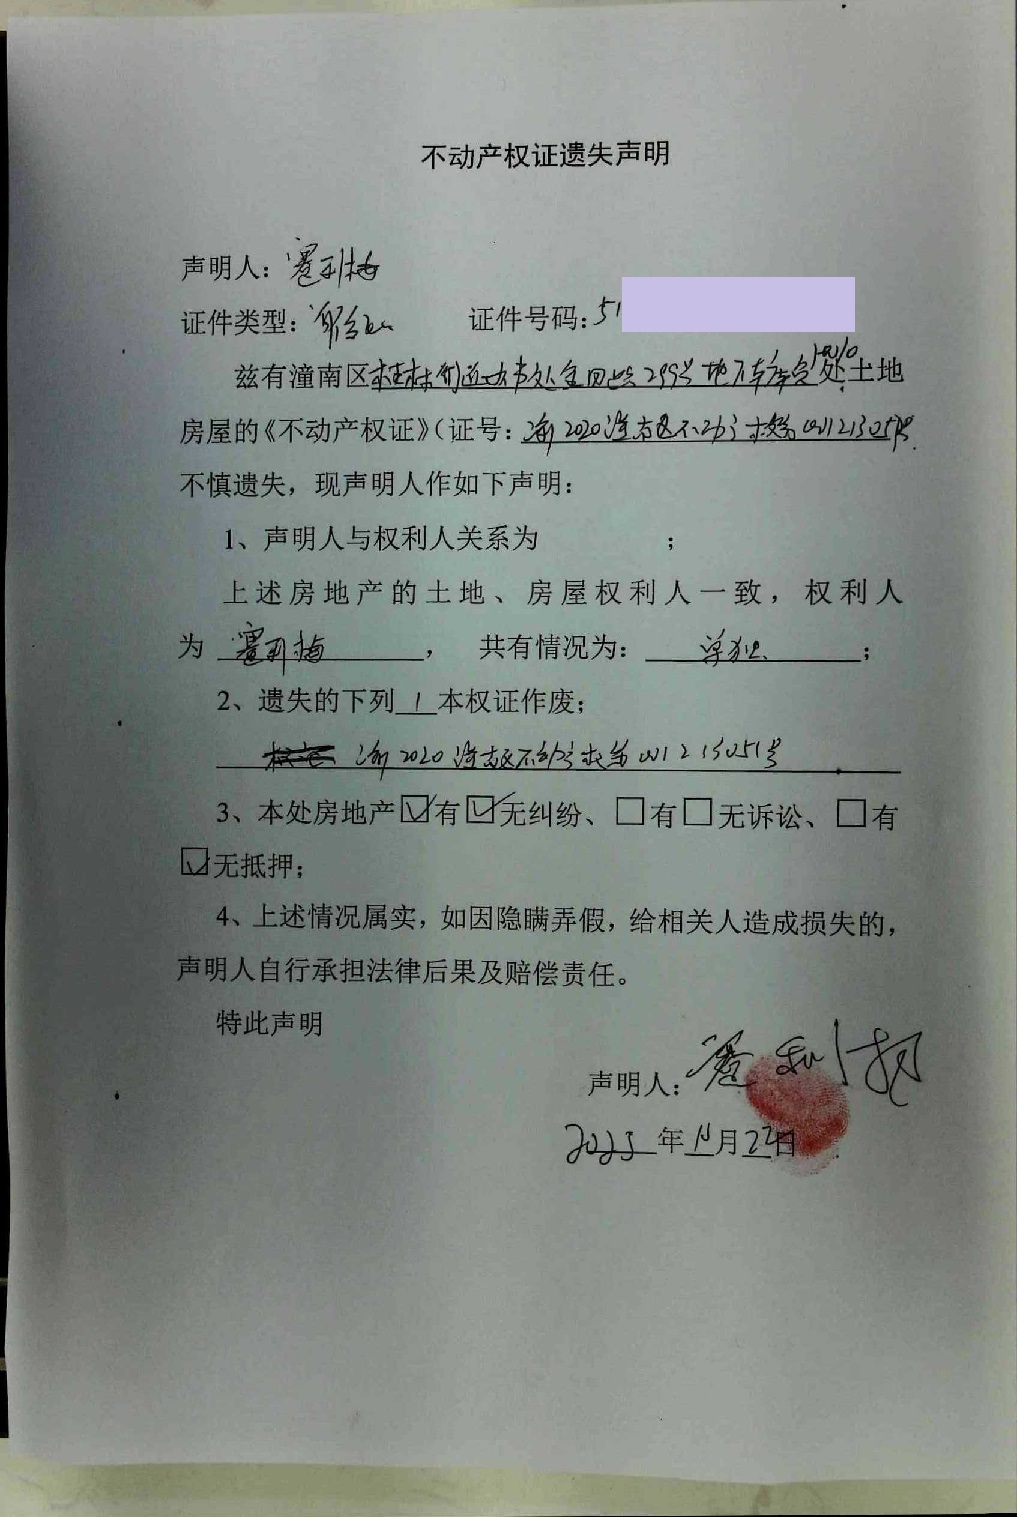 不动产权证遗失声明
声明人：蹇利梅
证件类型：身份证 证件号码：51
兹有潼南区桂林街道办事处金田路299号地下车库负1-010处土地
房屋的《不动产权证》（证号：渝2020潼南区不动产权第001213051号
不慎遗失，现声明人作如下声明：
1、声明人与权利人关系为 ；
上述房地产的土地、房屋权利人一致，权利人
为 蹇利梅 ， 共有情况为： 单独 ；
2、遗失的下列 1 本权证作废；
渝2020潼南区不动产权第001213051号
3、本处房地产☑有☑无纠纷、☐有☐无诉讼、☐有
☑无抵押；
4、上述情况属实，如因隐瞒弄假，给相关人造成损失的，
声明人自行承担法律后果及赔偿责任。
特此声明
声明人：蹇利梅
2023 年 11 月 22 日